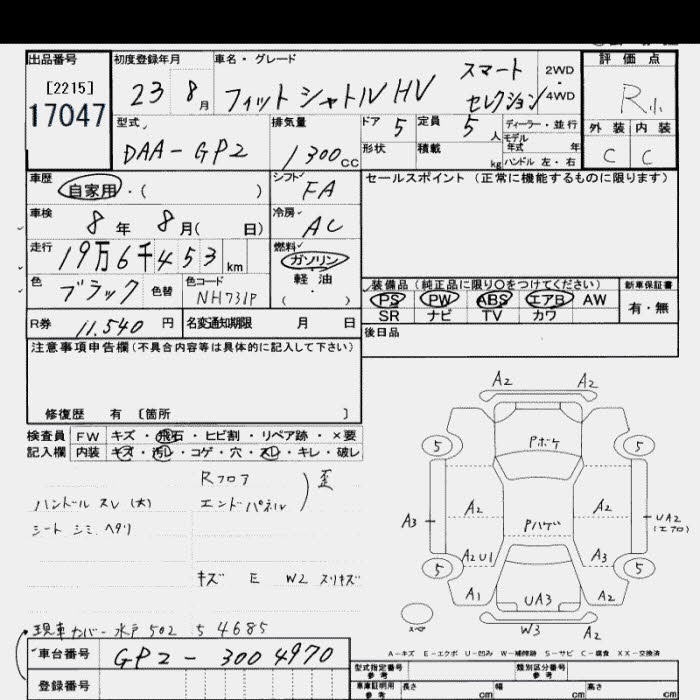 出品番号 初度登録年月 車名・グレード 評価点
[2215] 23 8月 フィットシャトルHV スマート 2WD R小
17047 セレクション 4WD
型式 排気量 ドア 5 定員 5人 ディーラー・並行 外装 内装
DAA-GP2 1300cc 形状 積載 kg モデル年式 年 C C
ハンドル 左・右
車歴 シフト セールスポイント(正常に機能するものに限ります)
自家用・( ) FA
車検 冷房
8年 8月( 日) AC
走行 燃料
19万6千453km ガソリン
軽油
色 色替 色コード ( ) 装備品(純正品に限り○をつけてください) 新車保証書
ブラック NH731P PS PW ABS エアB AW 有・無
R券 11.540円 名変通知期限 月 日 SR ナビ TV カワ
注意事項申告欄(不具合内容等は具体的に記入して下さい) 後日品
修復歴 有 〔箇所 〕
検査員 FW キズ・飛石・ヒビ割・リペア跡・×要
記入欄 内装 キズ・汚レ・コゲ・穴・スレ・キレ・破レ
Rフロア 歪
ハンドル スレ(大) エンドパネル
シート シミ ヘタリ
キズ E W2 スリキズ
現車カバー水戸502 さ 4685
車台番号 GP2-3004970
登録番号
A2 A2
5 Pボケ 5
A3 A2 A2 UA2
(エアロ)
Pハゲ
5 A2U1 A3 5
A1 UA3 A2
W3 A2
スペア
A-キズ E-エクボ U-凹み W-補修跡 S-サビ C-腐食 XX-交換済
型式指定番号 参考 類別区分番号 参考
車庫証明用 参考 長さ cm 幅 cm 高さ cm